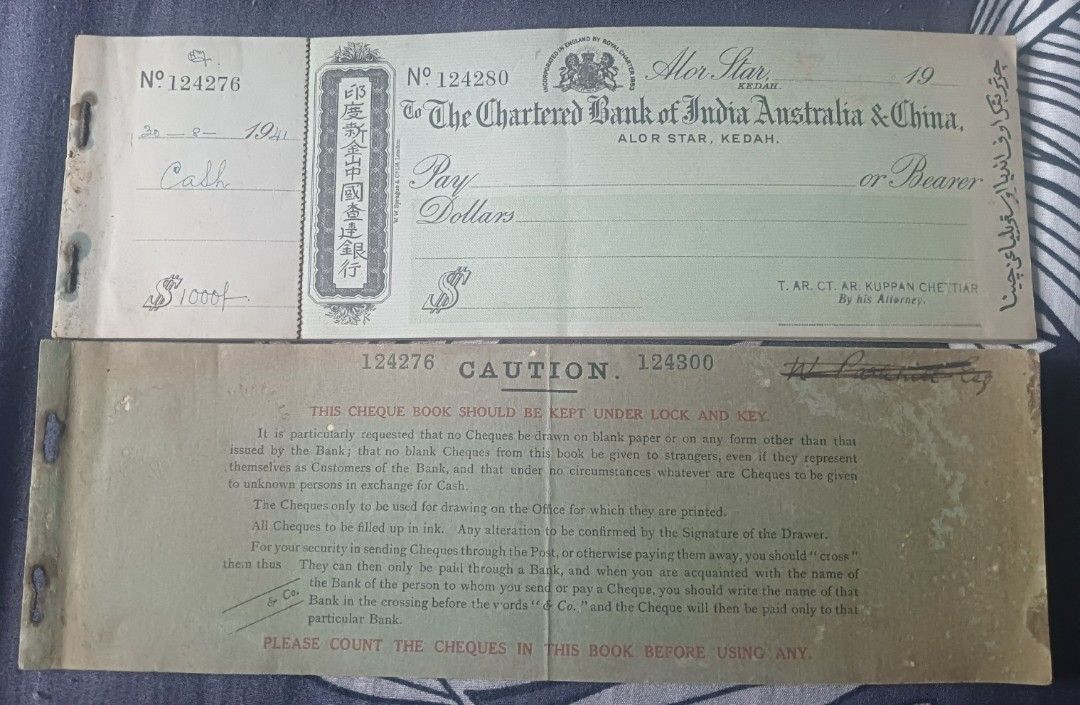 Nº 124276
30 - 8 - 1941
Cash
$ 1000/-
印度新金山中國查達銀行
W. W. Sprague & Co Ltd. London.
Nº 124280
INCORPORATED IN ENGLAND BY ROYAL CHARTER 1853
Alor Star, 19
KEDAH.
To The Chartered Bank of India Australia & China,
ALOR STAR, KEDAH.
Pay or Bearer
Dollars
$
T. AR. CT. AR. KUPPAN CHETTIAR
By his Attorney.
124276 CAUTION. 124300
THIS CHEQUE BOOK SHOULD BE KEPT UNDER LOCK AND KEY.
It is particularly requested that no Cheques be drawn on blank paper or on any form other than that
issued by the Bank; that no blank Cheques from this book be given to strangers, even if they represent
themselves as Customers of the Bank, and that under no circumstances whatever are Cheques to be given
to unknown persons in exchange for Cash.
The Cheques only to be used for drawing on the Office for which they are printed.
All Cheques to be filled up in ink. Any alteration to be confirmed by the Signature of the Drawer.
For your security in sending Cheques through the Post, or otherwise paying them away, you should "cross"
them thus They can then only be paid through a Bank, and when you are acquainted with the name of
the Bank of the person to whom you send or pay a Cheque, you should write the name of that
& Co. Bank in the crossing before the words "& Co." and the Cheque will then be paid only to that
particular Bank.
PLEASE COUNT THE CHEQUES IN THIS BOOK BEFORE USING ANY.